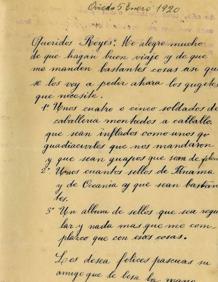 Oviedo 5 Enero 1920
Queridos Reyes: Me alegro mucho
de que hagan buen viaje y de que
me manden bastantes cosas así que
se los voy a pedir ahora los juguetes
que necesite.
1º Unos cuatro o cinco soldados de
caballería montados a caballo
que sean inflados como unos
que nos mandaron
y que sean guapos que sean de
2º Unos cuantos sellos de
y de Oceanía y que sean bastan
tes.
3º Un álbum de sellos que sea regu
lar y nada mas que me com
plazco que con esas cosas.
Les desea felices pascuas su
amigo que le besa la mano